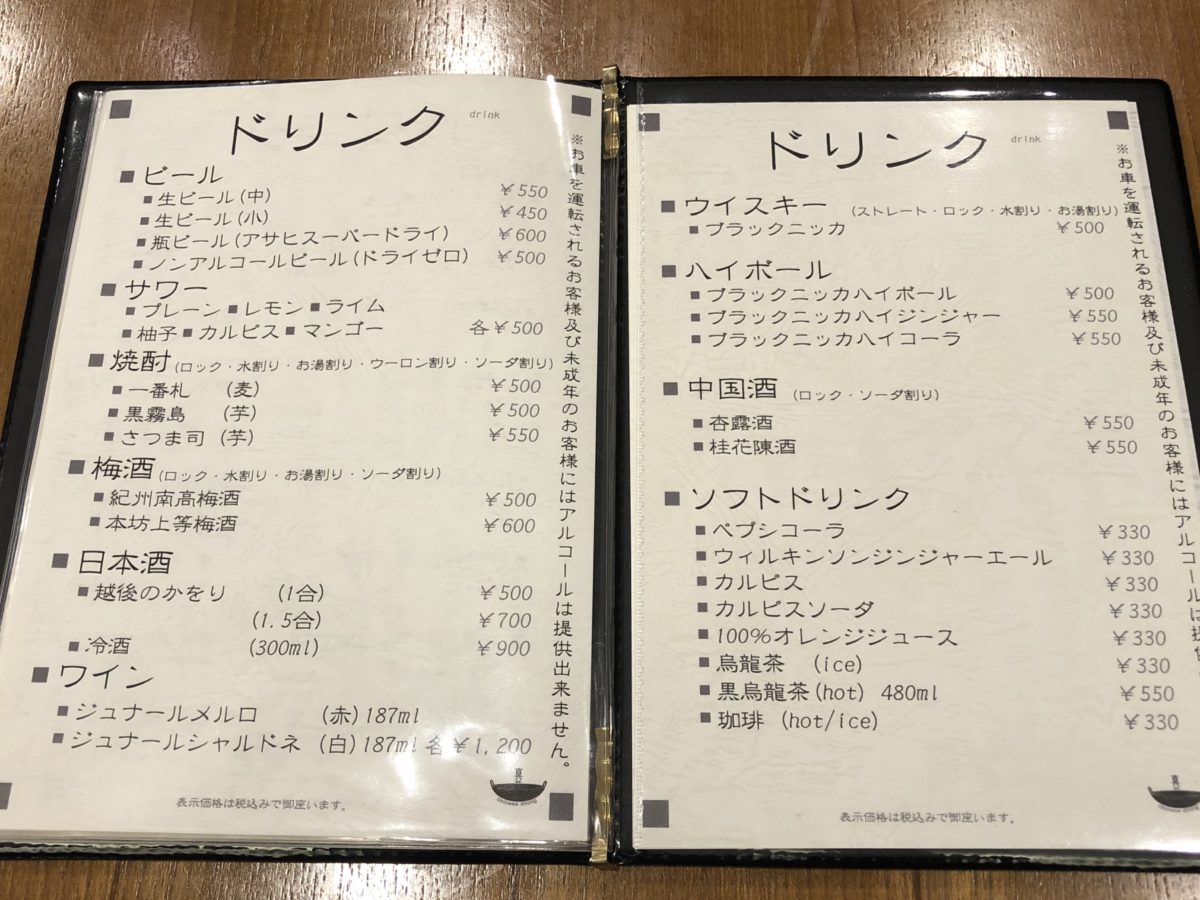 ドリンク drink
■ビール
■生ビール(中) ¥550
■生ビール(小) ¥450
■瓶ビール(アサヒスーパードライ) ¥600
■ノンアルコールビール(ドライゼロ) ¥500
■サワー
■プレーン■レモン■ライム
■柚子■カルピス■マンゴー 各¥500
■焼酎(ロック・水割り・お湯割り・ウーロン割り・ソーダ割り)
■一番札 (麦) ¥500
■黒霧島 (芋) ¥500
■さつま司 (芋) ¥550
■梅酒(ロック・水割り・お湯割り・ソーダ割り)
■紀州南高梅酒 ¥500
■本坊上等梅酒 ¥600
■日本酒
■越後のかをり (1合) ¥500
(1.5合) ¥700
■冷酒 (300ml) ¥900
■ワイン
■ジュナールメルロ (赤)187ml
■ジュナールシャルドネ (白)187ml 各¥1,200
表示価格は税込みで御座います。
※お車を運転されるお客様及び未成年のお客様にはアルコールは提供出来ません。
ドリンク drink
■ウイスキー (ストレート・ロック・水割り・お湯割り)
■ブラックニッカ ¥500
■ハイボール
■ブラックニッカハイボール ¥500
■ブラックニッカハイジンジャー ¥550
■ブラックニッカハイコーラ ¥550
■中国酒 (ロック・ソーダ割り)
■杏露酒 ¥550
■桂花陳酒 ¥550
■ソフトドリンク
■ペプシコーラ ¥330
■ウィルキンソンジンジャーエール ¥330
■カルピス ¥330
■カルピスソーダ ¥330
■100%オレンジジュース ¥330
■烏龍茶 (ice) ¥330
■黒烏龍茶(hot) 480ml ¥550
■珈琲 (hot/ice) ¥330
表示価格は税込みで御座います。
※お車を運転されるお客様及び未成年のお客様にはアルコールは提